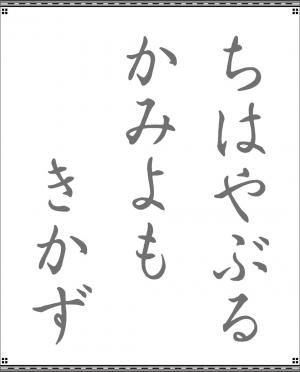 ちはやぶる
かみよも
きかず